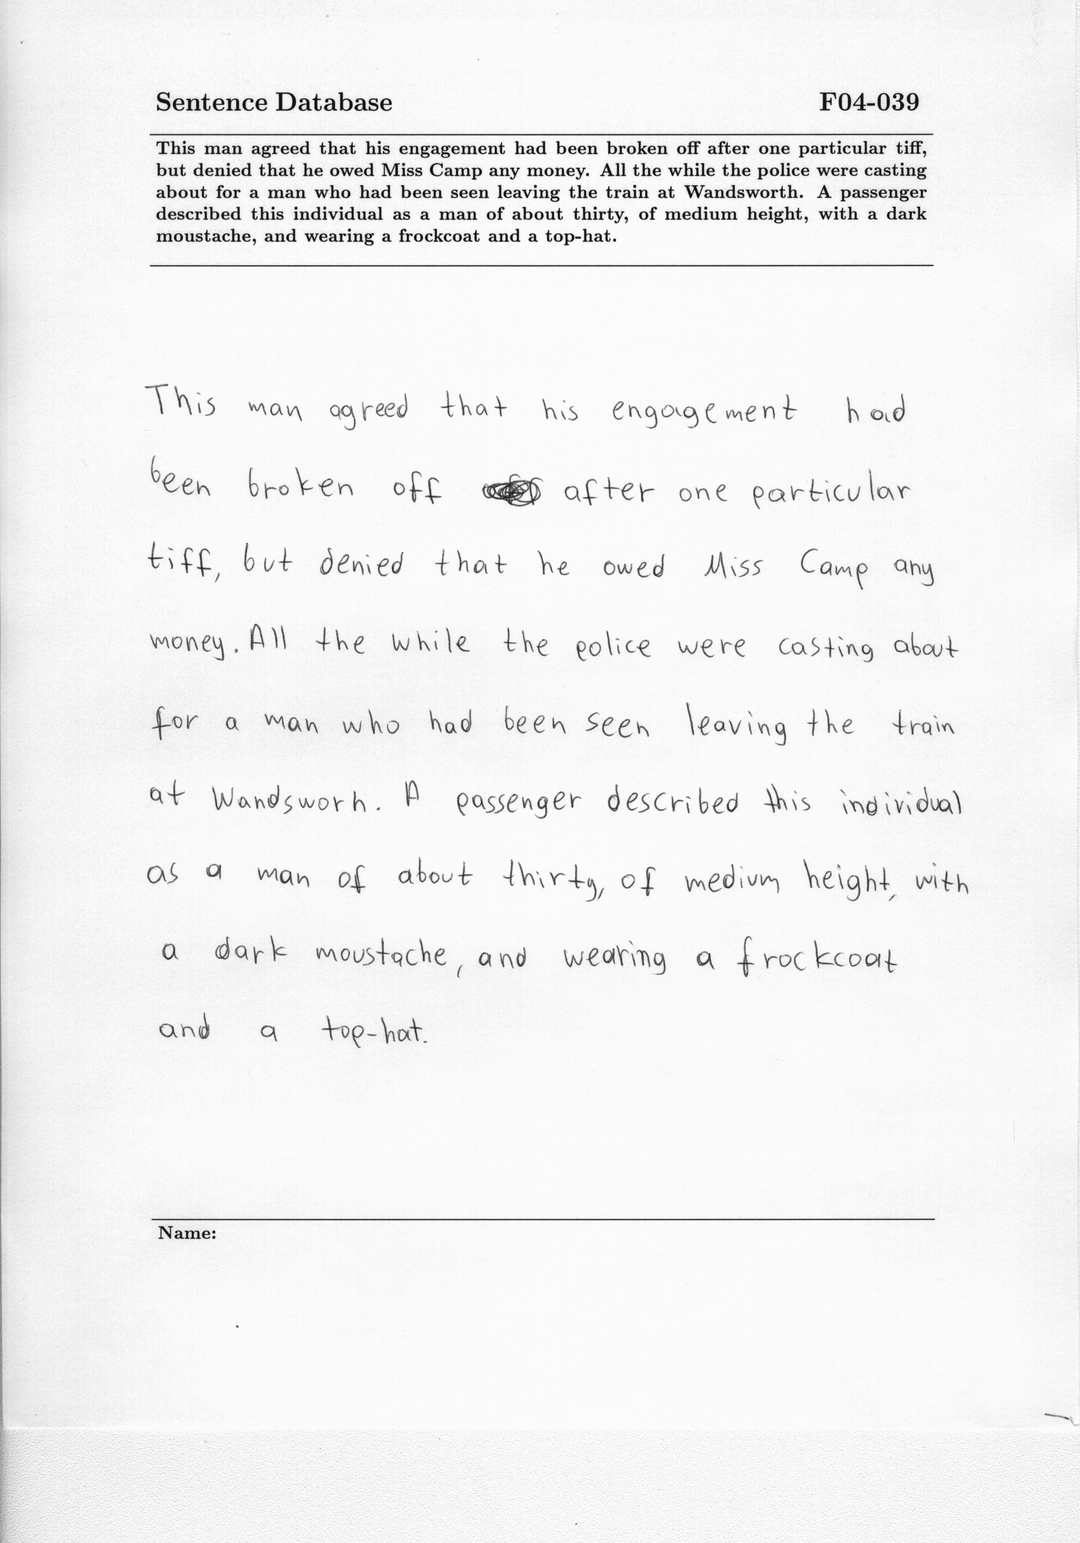 Sentence Database F04-039
This man agreed that his engagement had been broken off after one particular tiff,
but denied that he owed Miss Camp any money. All the while the police were casting
about for a man who had been seen leaving the train at Wandsworth. A passenger
described this individual as a man of about thirty, of medium height, with a dark
moustache, and wearing a frockcoat and a top-hat.
This man agreed that his engagement had
been broken off after one particular
tiff, but denied that he owed Miss Camp any
money. All the while the police were casting about
for a man who had been seen leaving the train
at Wandsworh. A passenger described this individual
as a man of about thirty, of medium height, with
a dark moustache, and wearing a frockcoat
and a top-hat.
Name: